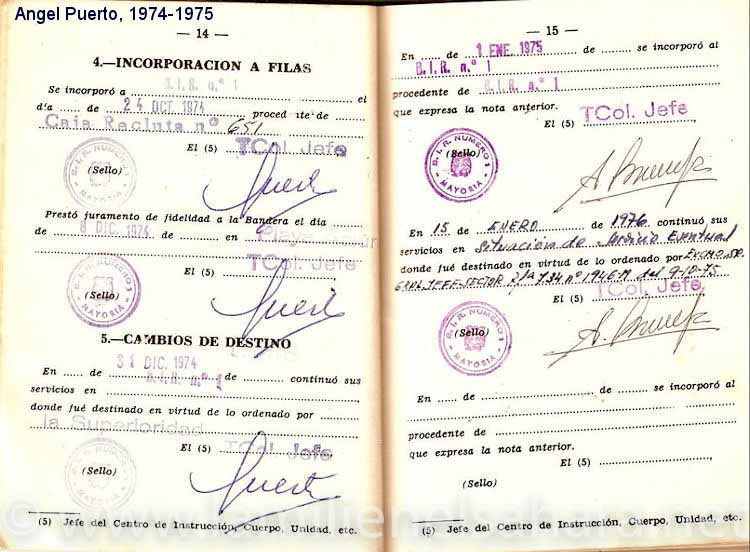 Angel Puerto, 1974-1975
— 14 —
4.—INCORPORACION A FILAS
B.I.R. n.º 1
Se incorporó a ........ el
día ..... de 24 OCT. 1974 procedente de
Caja Recluta nº 651
El (5) TCol. Jefe
B. I. R. NUMERO 1
MAYORIA
(Sello)
Prestó juramento de fidelidad a la Bandera el día
de 8 DIC. 1974 de ........ en Playa
El (5) TCol. Jefe
B. I. R. NUMERO 1
MAYORIA
(Sello)
5.—CAMBIOS DE DESTINO
31 DIC. 1974
En ..... de ........ de ..... continuó sus
B.I.R. n.º 1
servicios en
donde fué destinado en virtud de lo ordenado por
la Superioridad
El (5) TCol. Jefe
(Sello)
(5) Jefe del Centro de Instrucción, Cuerpo, Unidad, etc.
— 15 —
En ..... de 1 ENE. 1975 de ..... se incorporó al
B.I.R. n.º 1
procedente de B.I.R. n.º 1
que expresa la nota anterior.
El (5) TCol. Jefe
B. I. R. NUMERO 1
MAYORIA
(Sello)
En 15 de ENERO de 1976 continuó sus
servicios en Situación de Servicio Eventual
donde fué destinado en virtud de lo ordenado por EXCMO. SR.
GRAL JEFE SECTOR nº 1946-M del 9-12-75
El (5) TCol. Jefe
B. I. R. NUMERO 1
MAYORIA
(Sello)
En ..... de ........ de ..... se incorporó al
procedente de
que expresa la nota anterior.
El (5)
(Sello)
(5) Jefe del Centro de Instrucción, Cuerpo, Unidad, etc.